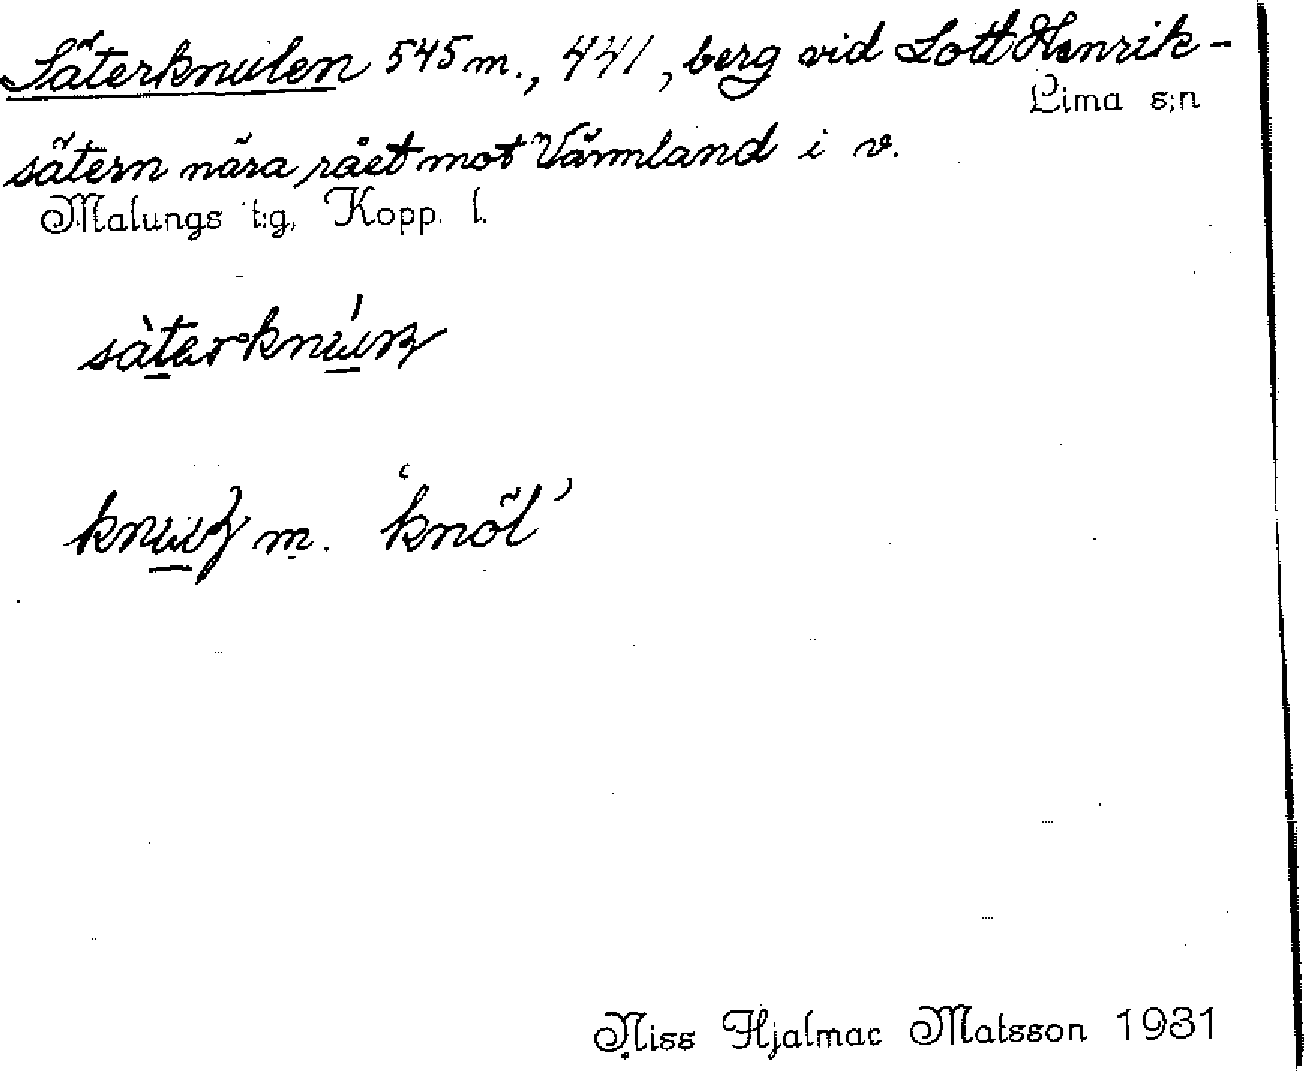 Säterknulen 545 m., 441, berg vid Lott Henrik-
Lima s:n
sätern nära rået mot Värmland i v.
Malungs t:g, Kopp. l.
m. 'knöl'
Niss Hjalmar Matsson 1931